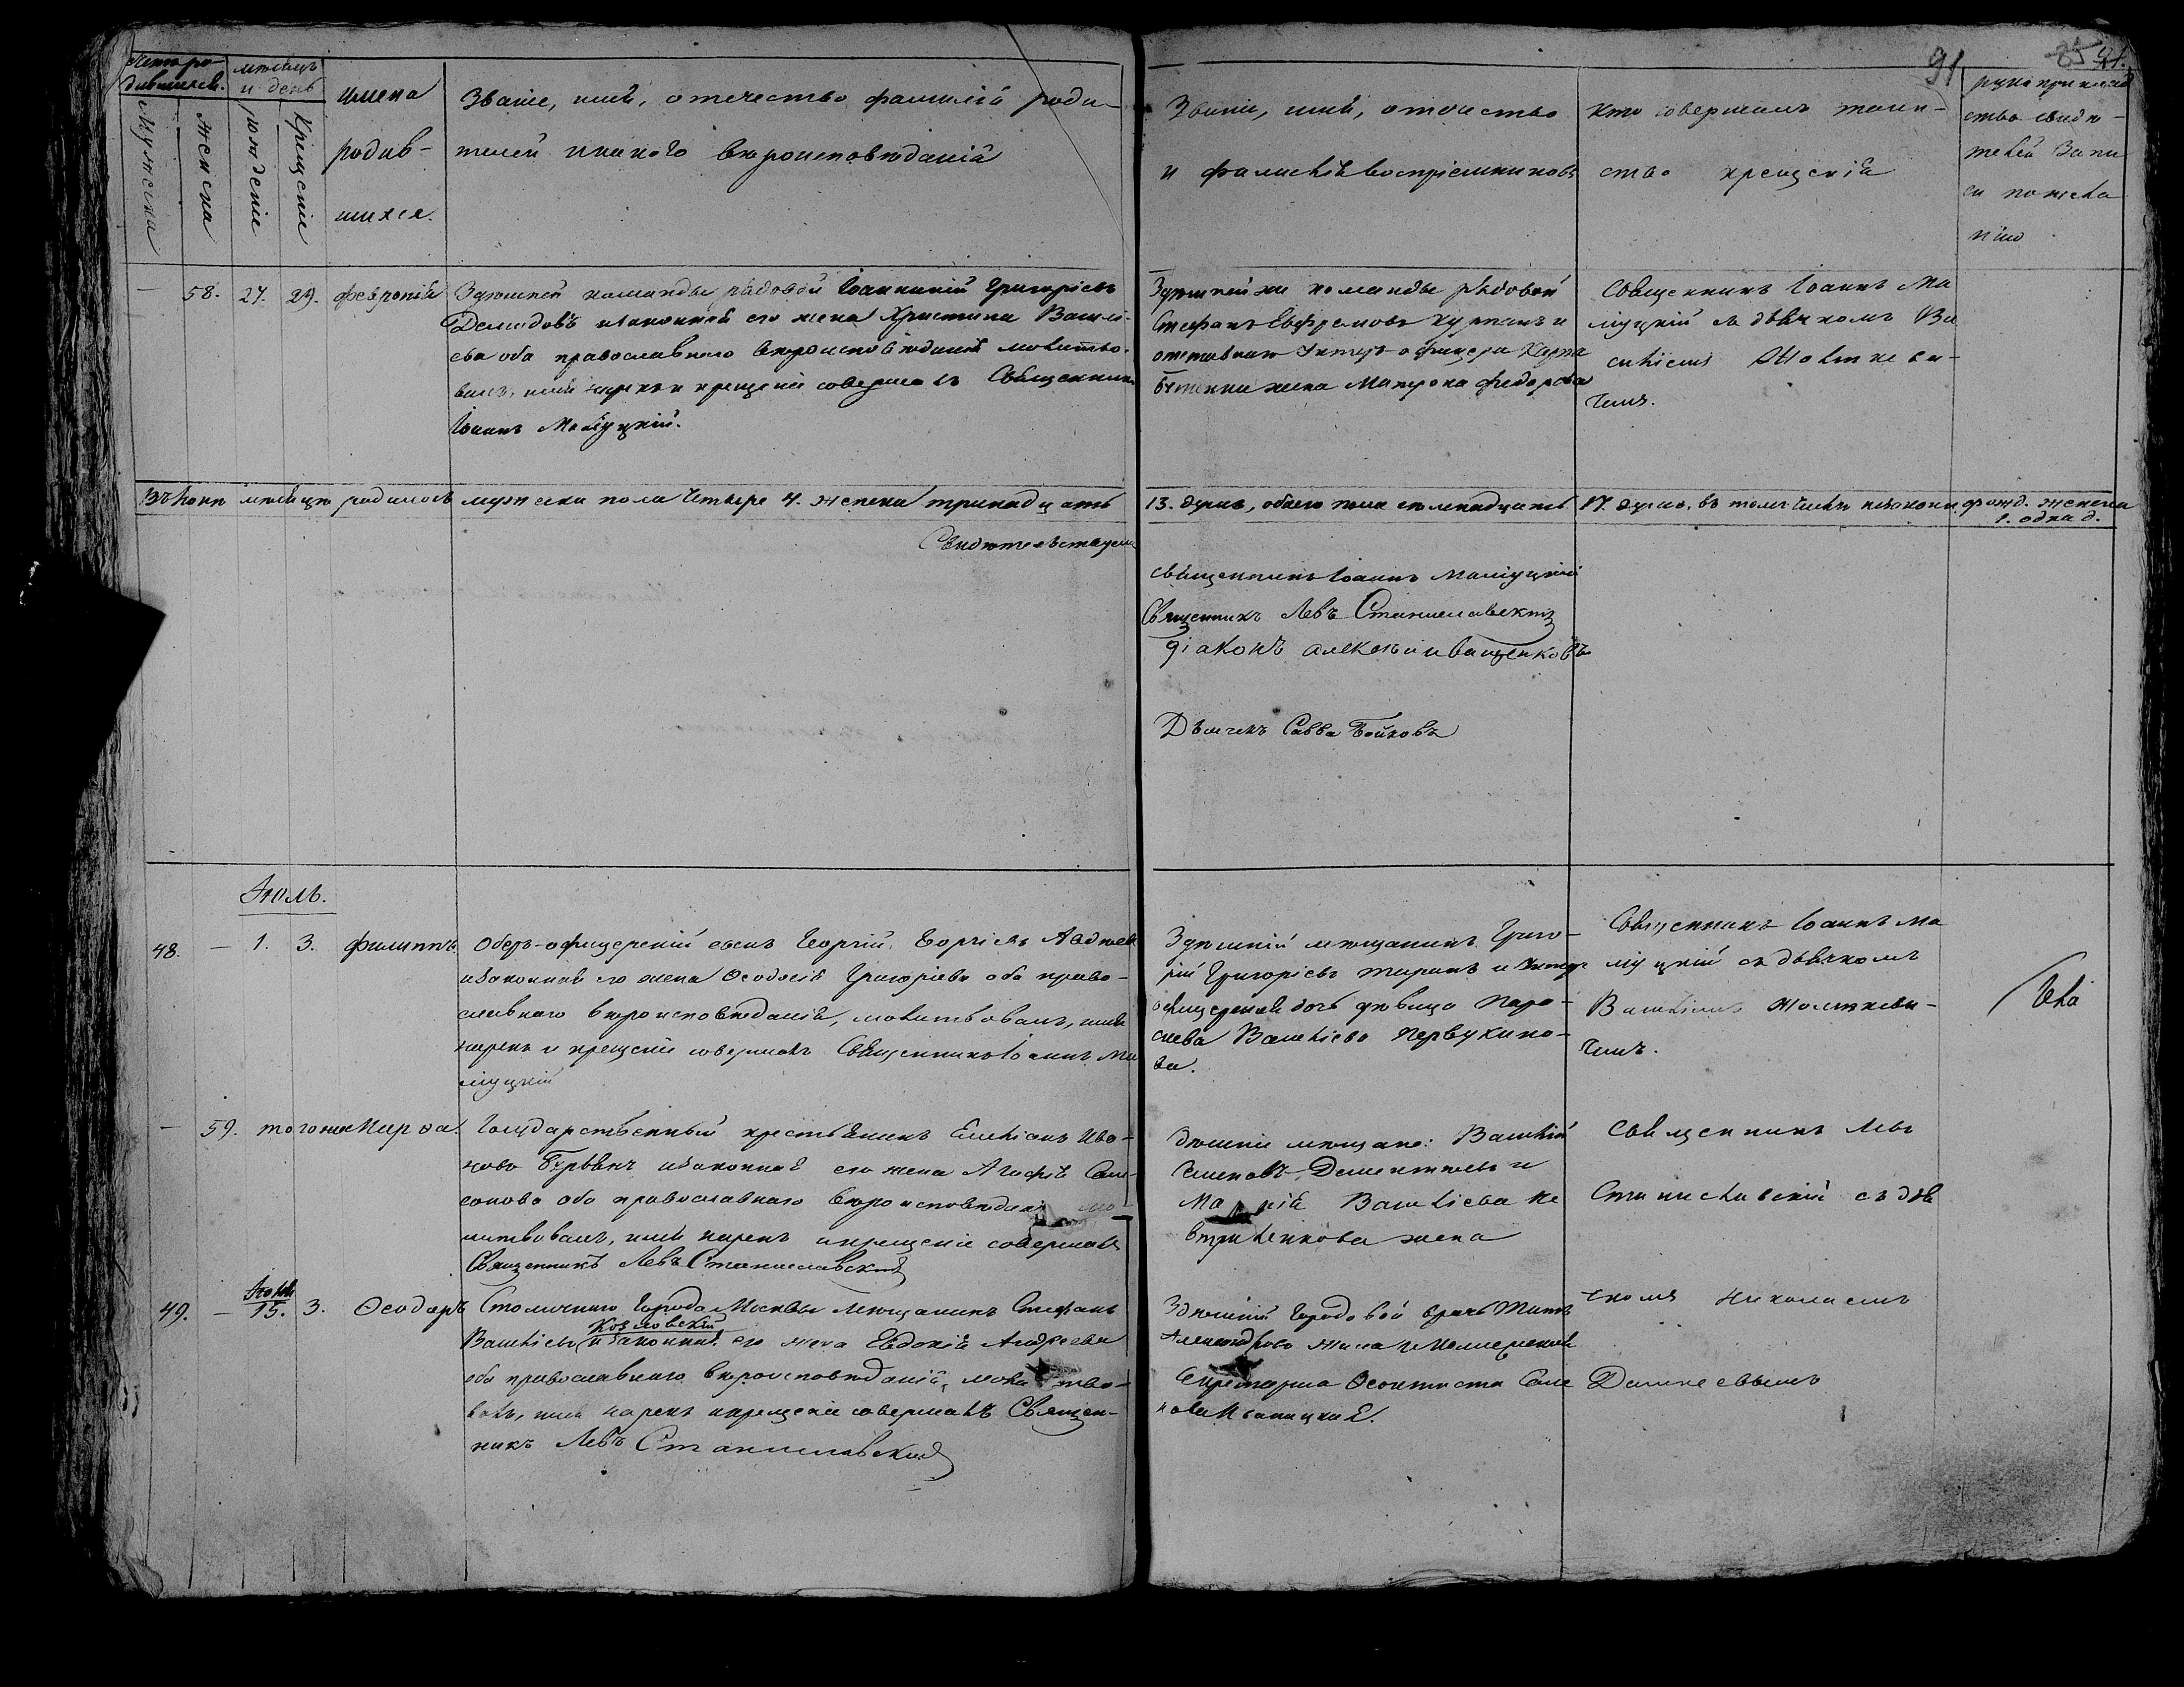 91 85 91.
Счетъ ро-
дившихся.
мѣсяцъ
и день
Мужеска
женска
рожденіе
Крещеніе
имена
родив-
шихся.
Званіе, имя, отечество фамилія роди-
телей и какого вѣроисповѣданія
Званіе, имя, отчество
и фамилія воспріемниковъ
кто совершалъ таин-
ство крещенія
рукоприклад
ство свидѣ-
телей запи
си по жела
нію
— 58. 27. 29. Февронія
Здѣшней команды рядовой Іоанникій Григоріевъ
Демидовъ и законная его жена Христина Василі-
ева оба православнаго вѣроисповѣданія молитво-
валъ, имя нарекъ и крещеніе совершалъ Священникъ
Іоаннъ Маліуцкій.
Здѣшней же команды рядовой
Стефанъ Евфремовъ и
отставнаго Унтеръ-офицера Карпа
жена Матрона Федорова
Священникъ Іоаннъ Ма
ліуцкій съ дьячкомъ Ва
силіемъ Жолткеви-
чемъ.
Въ Іюнѣ мѣсяцѣ родилось мужеска пола Четыре 4. женска тринадцать 13. душъ, обоего пола семнадцать 17. душъ, въ томъ числѣ незаконнорожд. женска
1. одна д.
Свидѣтельствуемъ
священникъ Іоаннъ Маліуцкій
Священникъ Левъ Станиславскій
діаконъ алексѣй иващенковъ
Дьячекъ Савва Бойковъ
Іюль.
48. — 1. 3. Филиппъ.
Оберъ-офицерскій сынъ Георгій Георгіевъ Авдѣев
и законная его жена Ѳеодосія Григоріева оба право-
славнаго вѣроисповѣданія, молитвовалъ, имя
нарекъ и крещеніе совершалъ Священникъ Іоаннъ Ма
ліуцкій
Здѣшній мѣщанинъ Григо-
рій Григорьевъ Таранъ и Унтеръ
офицерская дочь дѣвица Пара-
скева Василіева Первухино-
ва.
Священникъ Іоаннъ Ма
ліуцкій съ дьячкомъ
Василіемъ Жолткеви-
чемъ.
— 59. того же Марѳа.
Государственный крестьянинъ Емеліанъ Ива-
новъ и законная его жена Агафія Сам-
сонова оба православнаго вѣроисповѣдані мо-
литвовалъ, имя нарекъ и крещеніе совершалъ
Священникъ Левъ Станиславскій
Здѣшніе мѣщане: Василій
Семеновъ Дементьевъ и
Марія Василіева
жена
Священникъ Левъ
Станиславскій съ дья
49. — Іюня
15. 3. Ѳеодоръ
Столичнаго Города Москвы мѣщанинъ Стефанъ
Козловскій
Василіевъ и законная его жена Евдокія Андреева
оба православнаго вѣроисповѣданія, молитво-
валъ, имя нарекъ и крещеніе совершалъ Священ-
никъ Левъ Станиславскій
Здѣшній Городовой врачъ Титъ
Александровъ и Коллежскій
Секретарша Ѳеоктиста Семе
нова
чкомъ Николаемъ